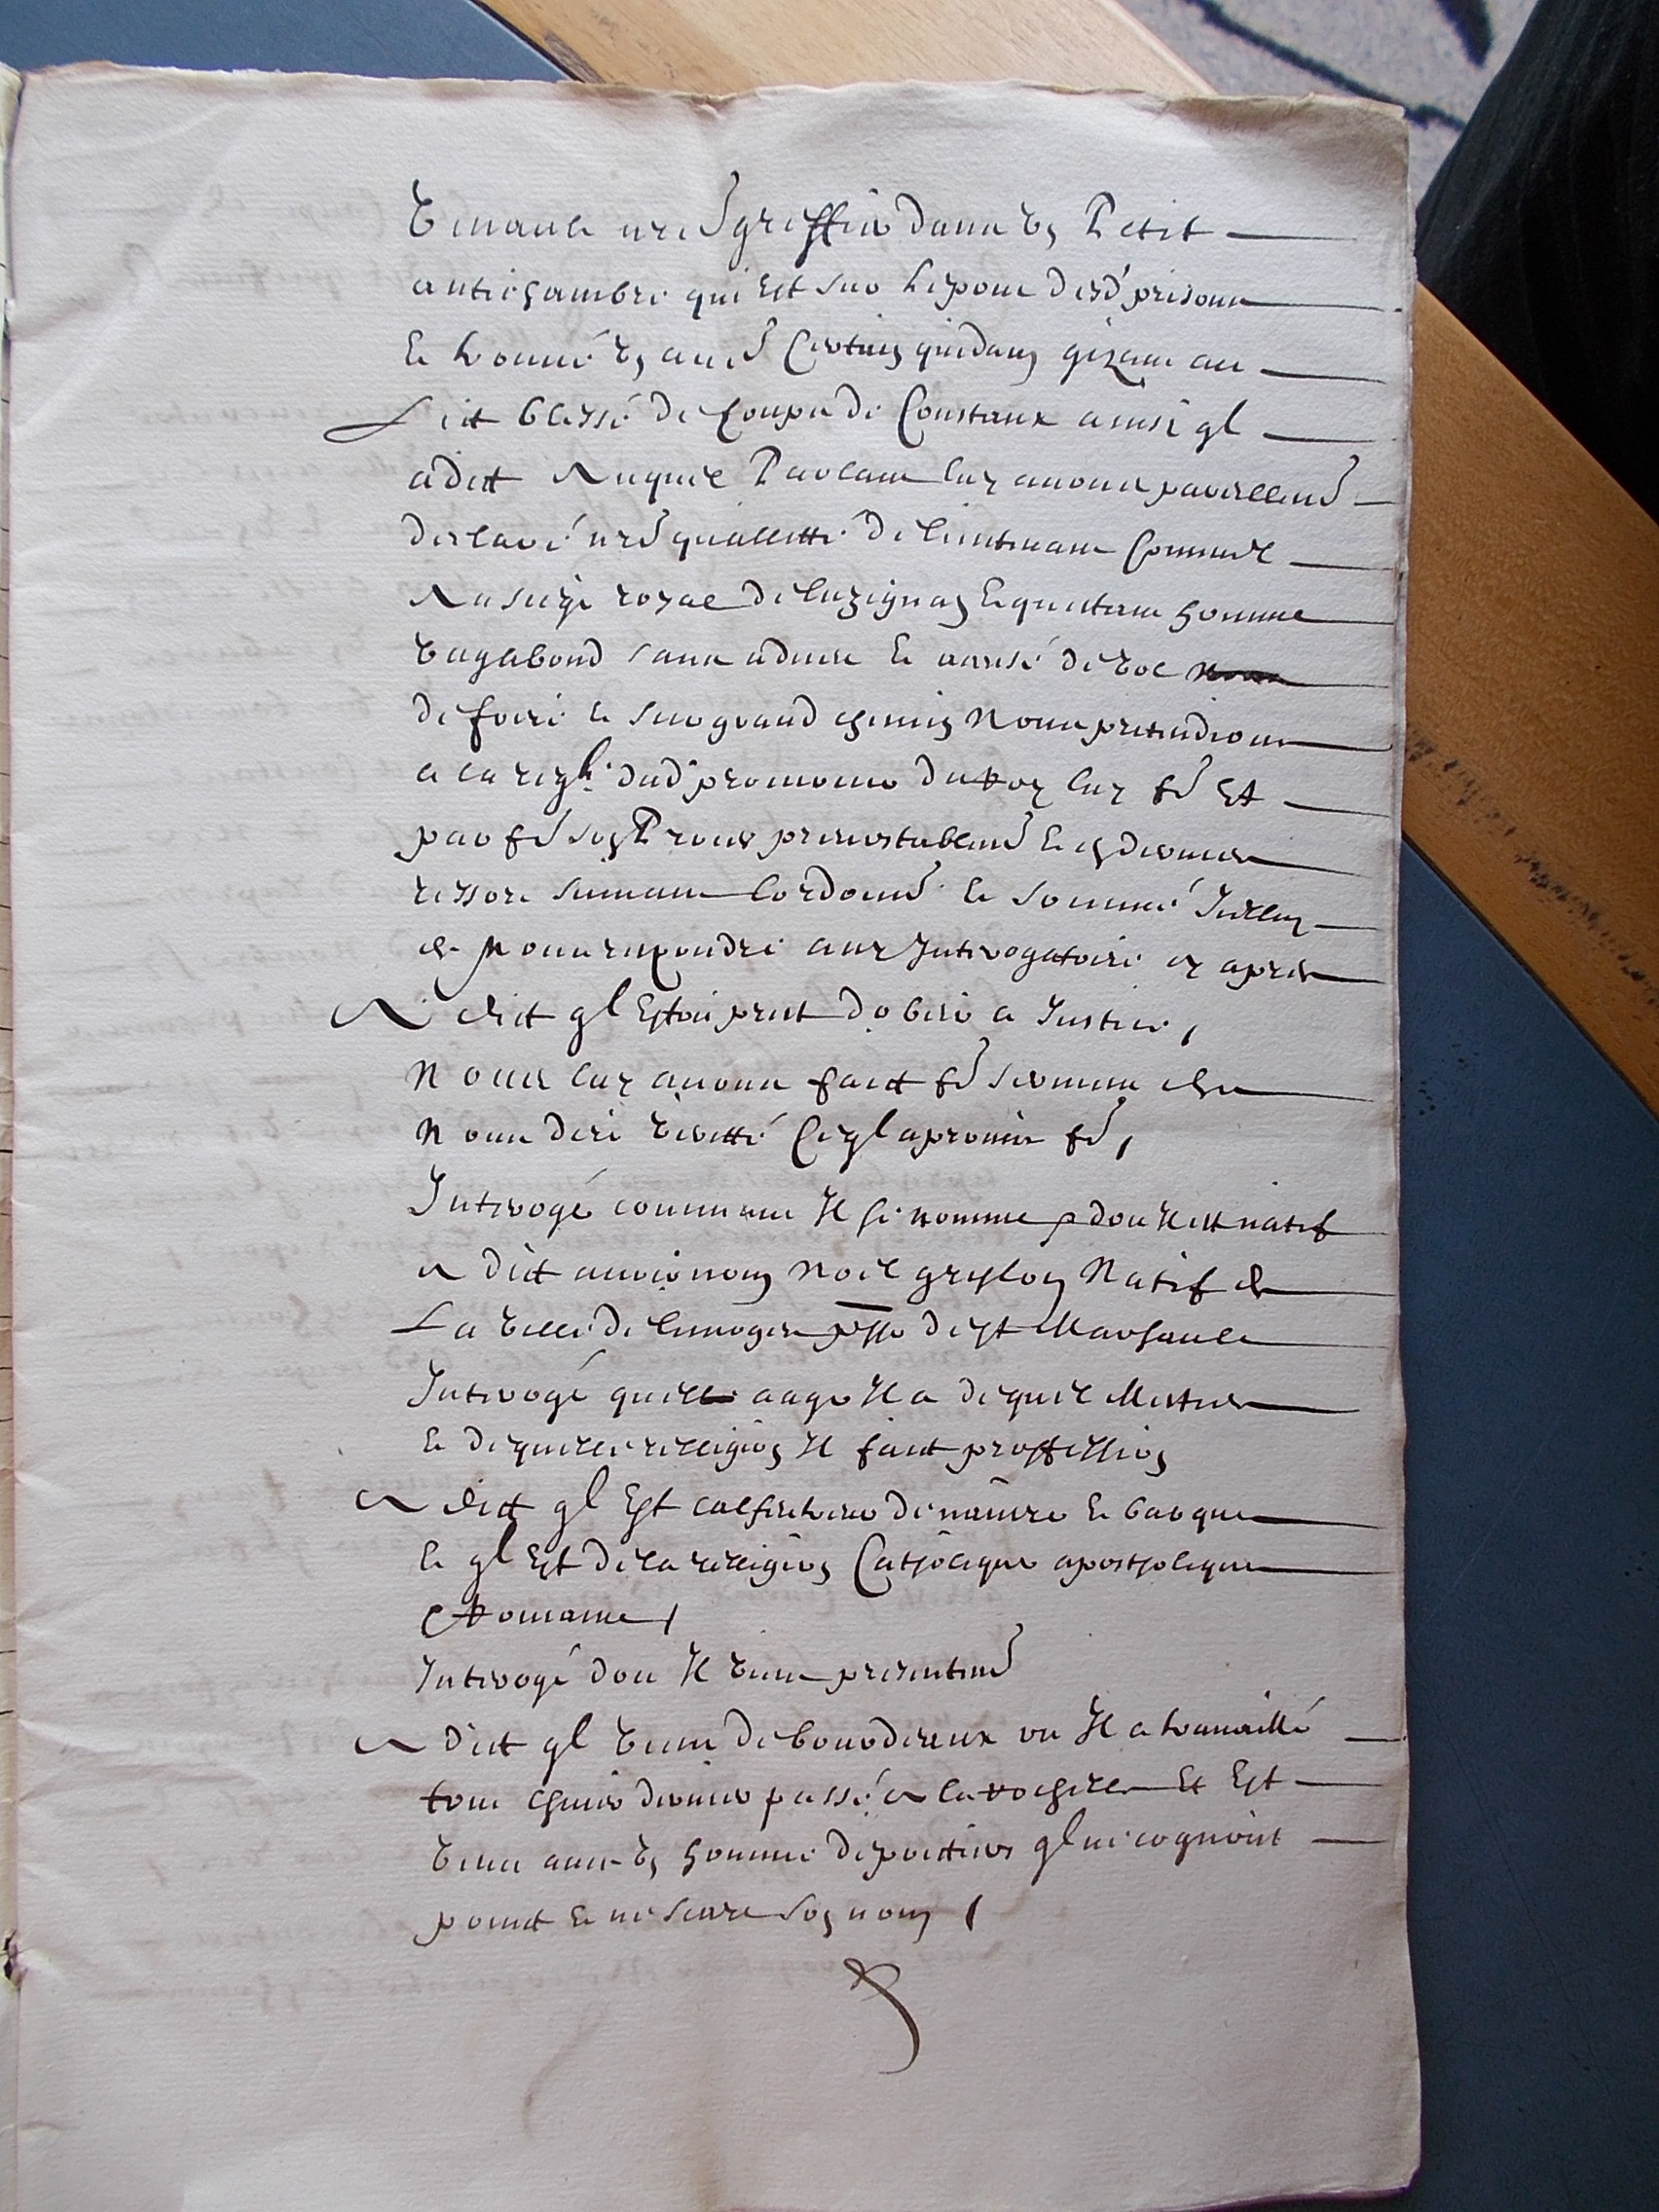 Tenante nred greffier dans un Petit
antichambre qui est sur le pont desd prisons
et trouvé un aud certain quidam gizant au
Lict blessé de coups de Coustaux ainsi ql
a dict Auquel Parlant luy avons pareillemt
desclaré nred quallitté de lieutenant Criminel
Au siege royal de luzignan et questant homme
vagabond sans adveu et accusé de vol
de foire et sur grand chemin Nous pretendions
a la reqte dud procureur du Roy luy fe et
par fe son Proces prevostablemt et en dernier
ressort suivant lordonnce et sommé Icelluy
de Nous respondre aux Interrogatoires cy apres
A dict ql Estoit prest dobeir a Justice,
Nous luy avons faict fe serment de
Nous dire veritté Ce ql a promis fe,
Interrogé comment Il se nomme et dou Il est natif
a dict avoir nom Noel greslon Natif de
La ville de limoges psse de st Marsault
Interrogé quel aage Il a de quel Mestier
et de quelle relligion Il faict proffession
A dict ql Est calfeteur de navire et barque
et ql Est de la relligion Catholique apostholique
et Romaine,
Interrogé dou Il vient presentemt
A dict ql vient de bourdeaux ou Il a travaillé
tout lhiver dernier passé a la rochelle Et Est
venu avec un homme de poictiers ql ne cognoist
poinct et ne scait son nom,